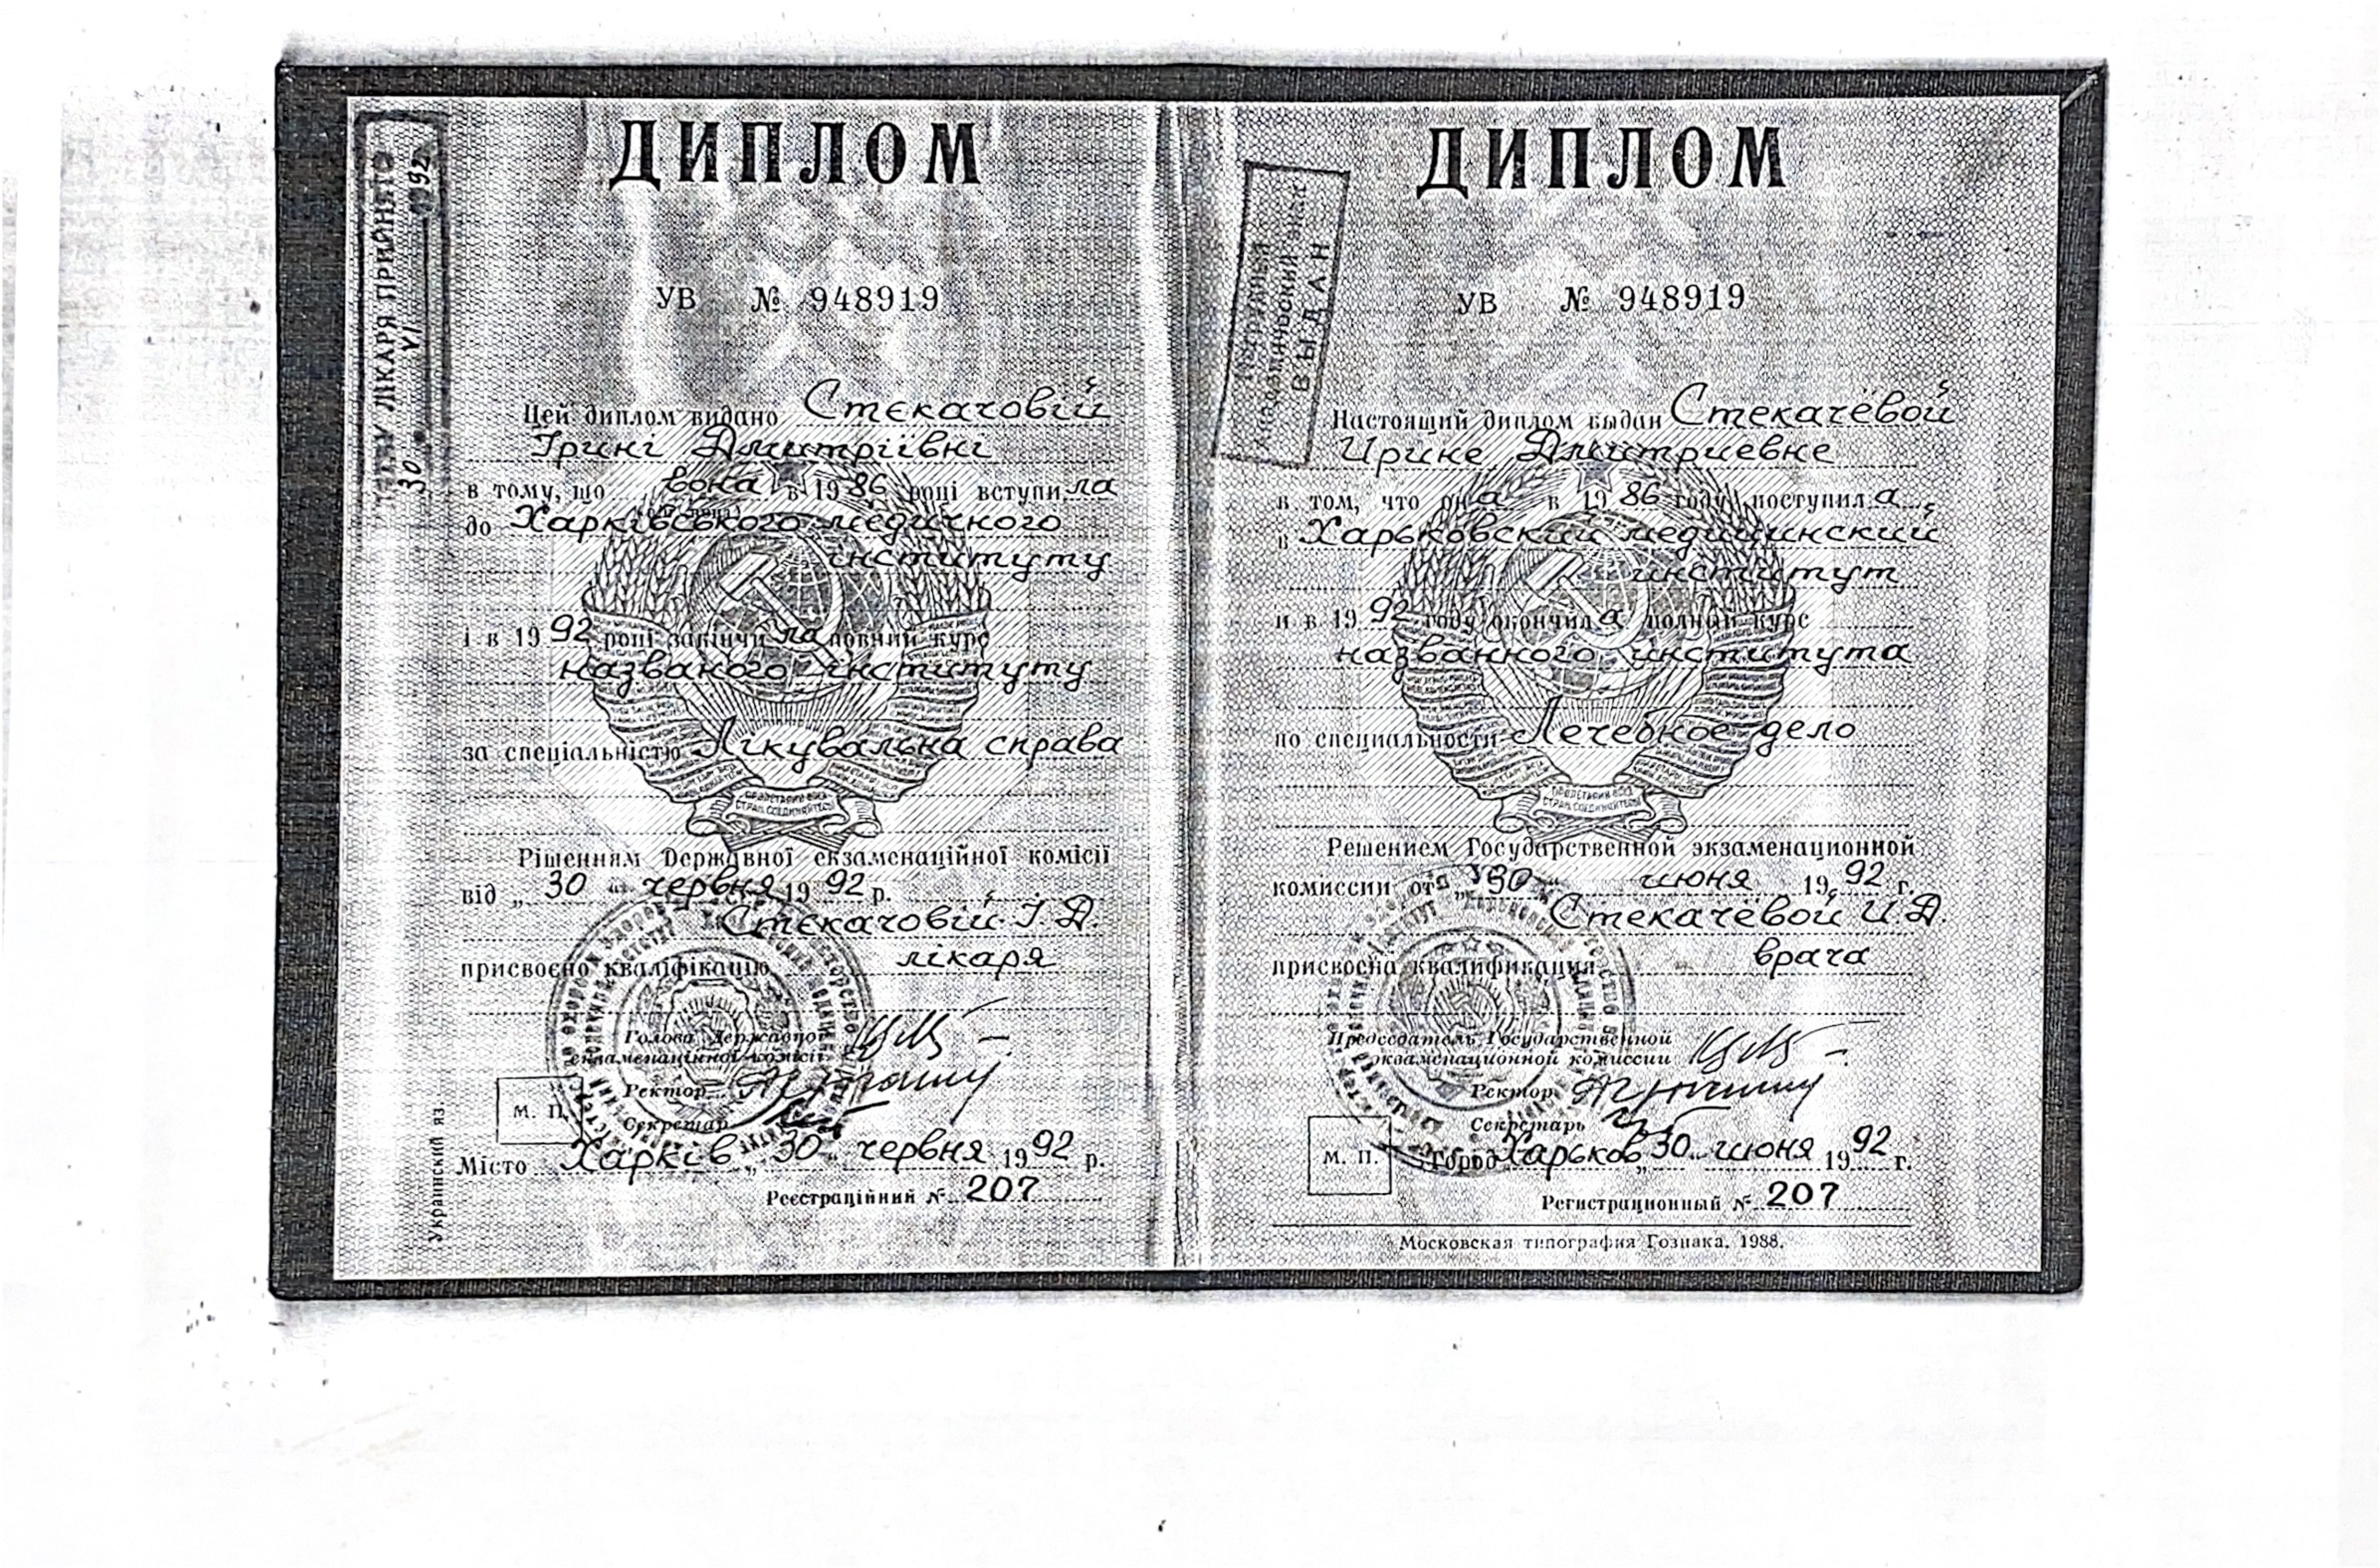 ДИПЛОМ
УВ № 948919
Цей диплом видано Стєкачовій
Ірині Дмитріївні
в тому, що вона в 1986 році вступила
до Харківського медичного
інституту
і в 1992 році закінчила повний курс
названого інституту
за спеціальністю Лікувальна справа
Рішенням Державної екзаменаційної комісії
від „30" червня 1992 р.
Стєкачовій І. Д.
присвоєно кваліфікацію лікаря
Голова Державної
екзаменаційної комісії
Ректор
Секретар
М. П.
Місто Харків „30" червня 1992 р.
Реєстраційний № 207
Украинский яз.
ЛІКАРЯ ПРИЙНЯТО
30 VI 1992
ДИПЛОМ
УВ № 948919
Нагрудный
Академический знак
ВЫДАН
Настоящий диплом выдан Стекачёвой
Ирине Дмитриевне
в том, что она в 1986 году поступила
в Харьковский медицинский
институт
и в 1992 году окончила полный курс
названного института
по специальности Лечебное дело
ПРОЛЕТАРИИ ВСЕХ
СТРАН, СОЕДИНЯЙТЕСЬ!
Решением Государственной экзаменационной
комиссии от „30" июня 1992 г.
Стекачёвой И. Д.
присвоена квалификация врача
Председатель Государственной
экзаменационной комиссии
Ректор
Секретарь
М. П.
Город Харьков „30" июня 1992 г.
Регистрационный № 207
Московская типография Гознака. 1988.